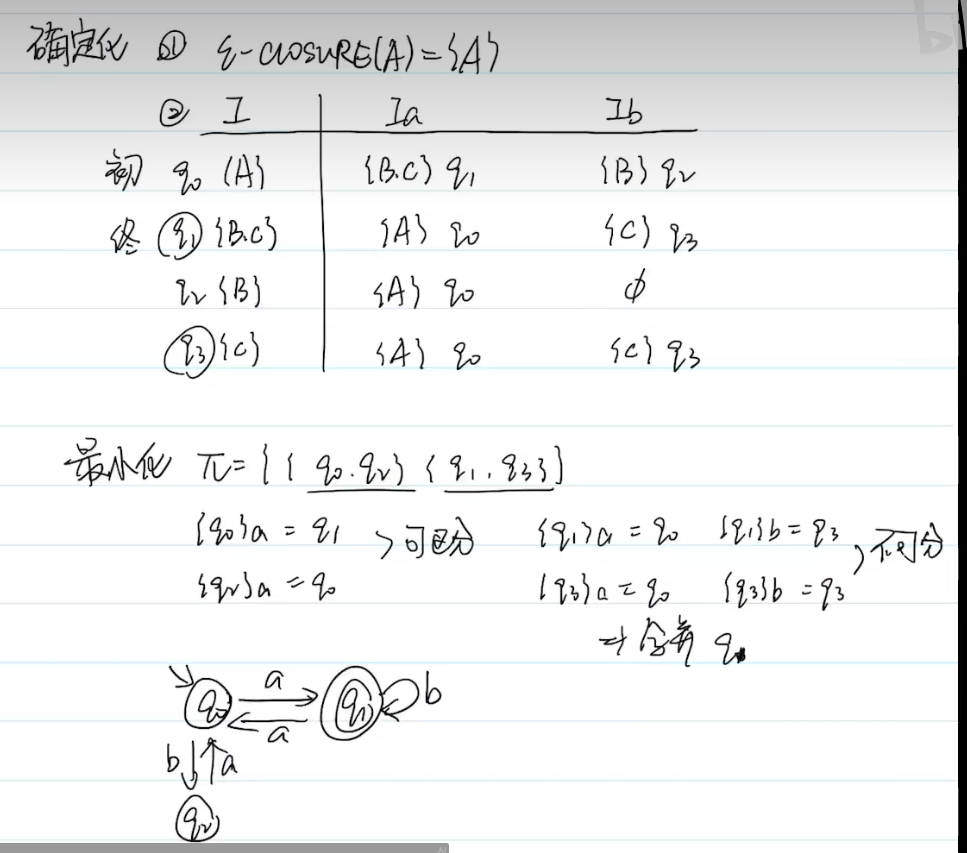 确定化 ① ε-CLOSURE(A)={A}
② I Ia Ib
初 q0 {A} {B.C} q1 {B} q2
终 q1 {B.C} {A} q0 {C} q3
q2 {B} {A} q0 ∅
q3 {C} {A} q0 {C} q3
最小化 π={{q0.q2} {q1.q3}}
{q0}a = q1 > 可区分 {q1}a = q0 {q1}b = q3 , 不可分
{q2}a = q0 {q3}a = q0 {q3}b = q3
⇒ 合并
a
q1 b
a
b a
q2